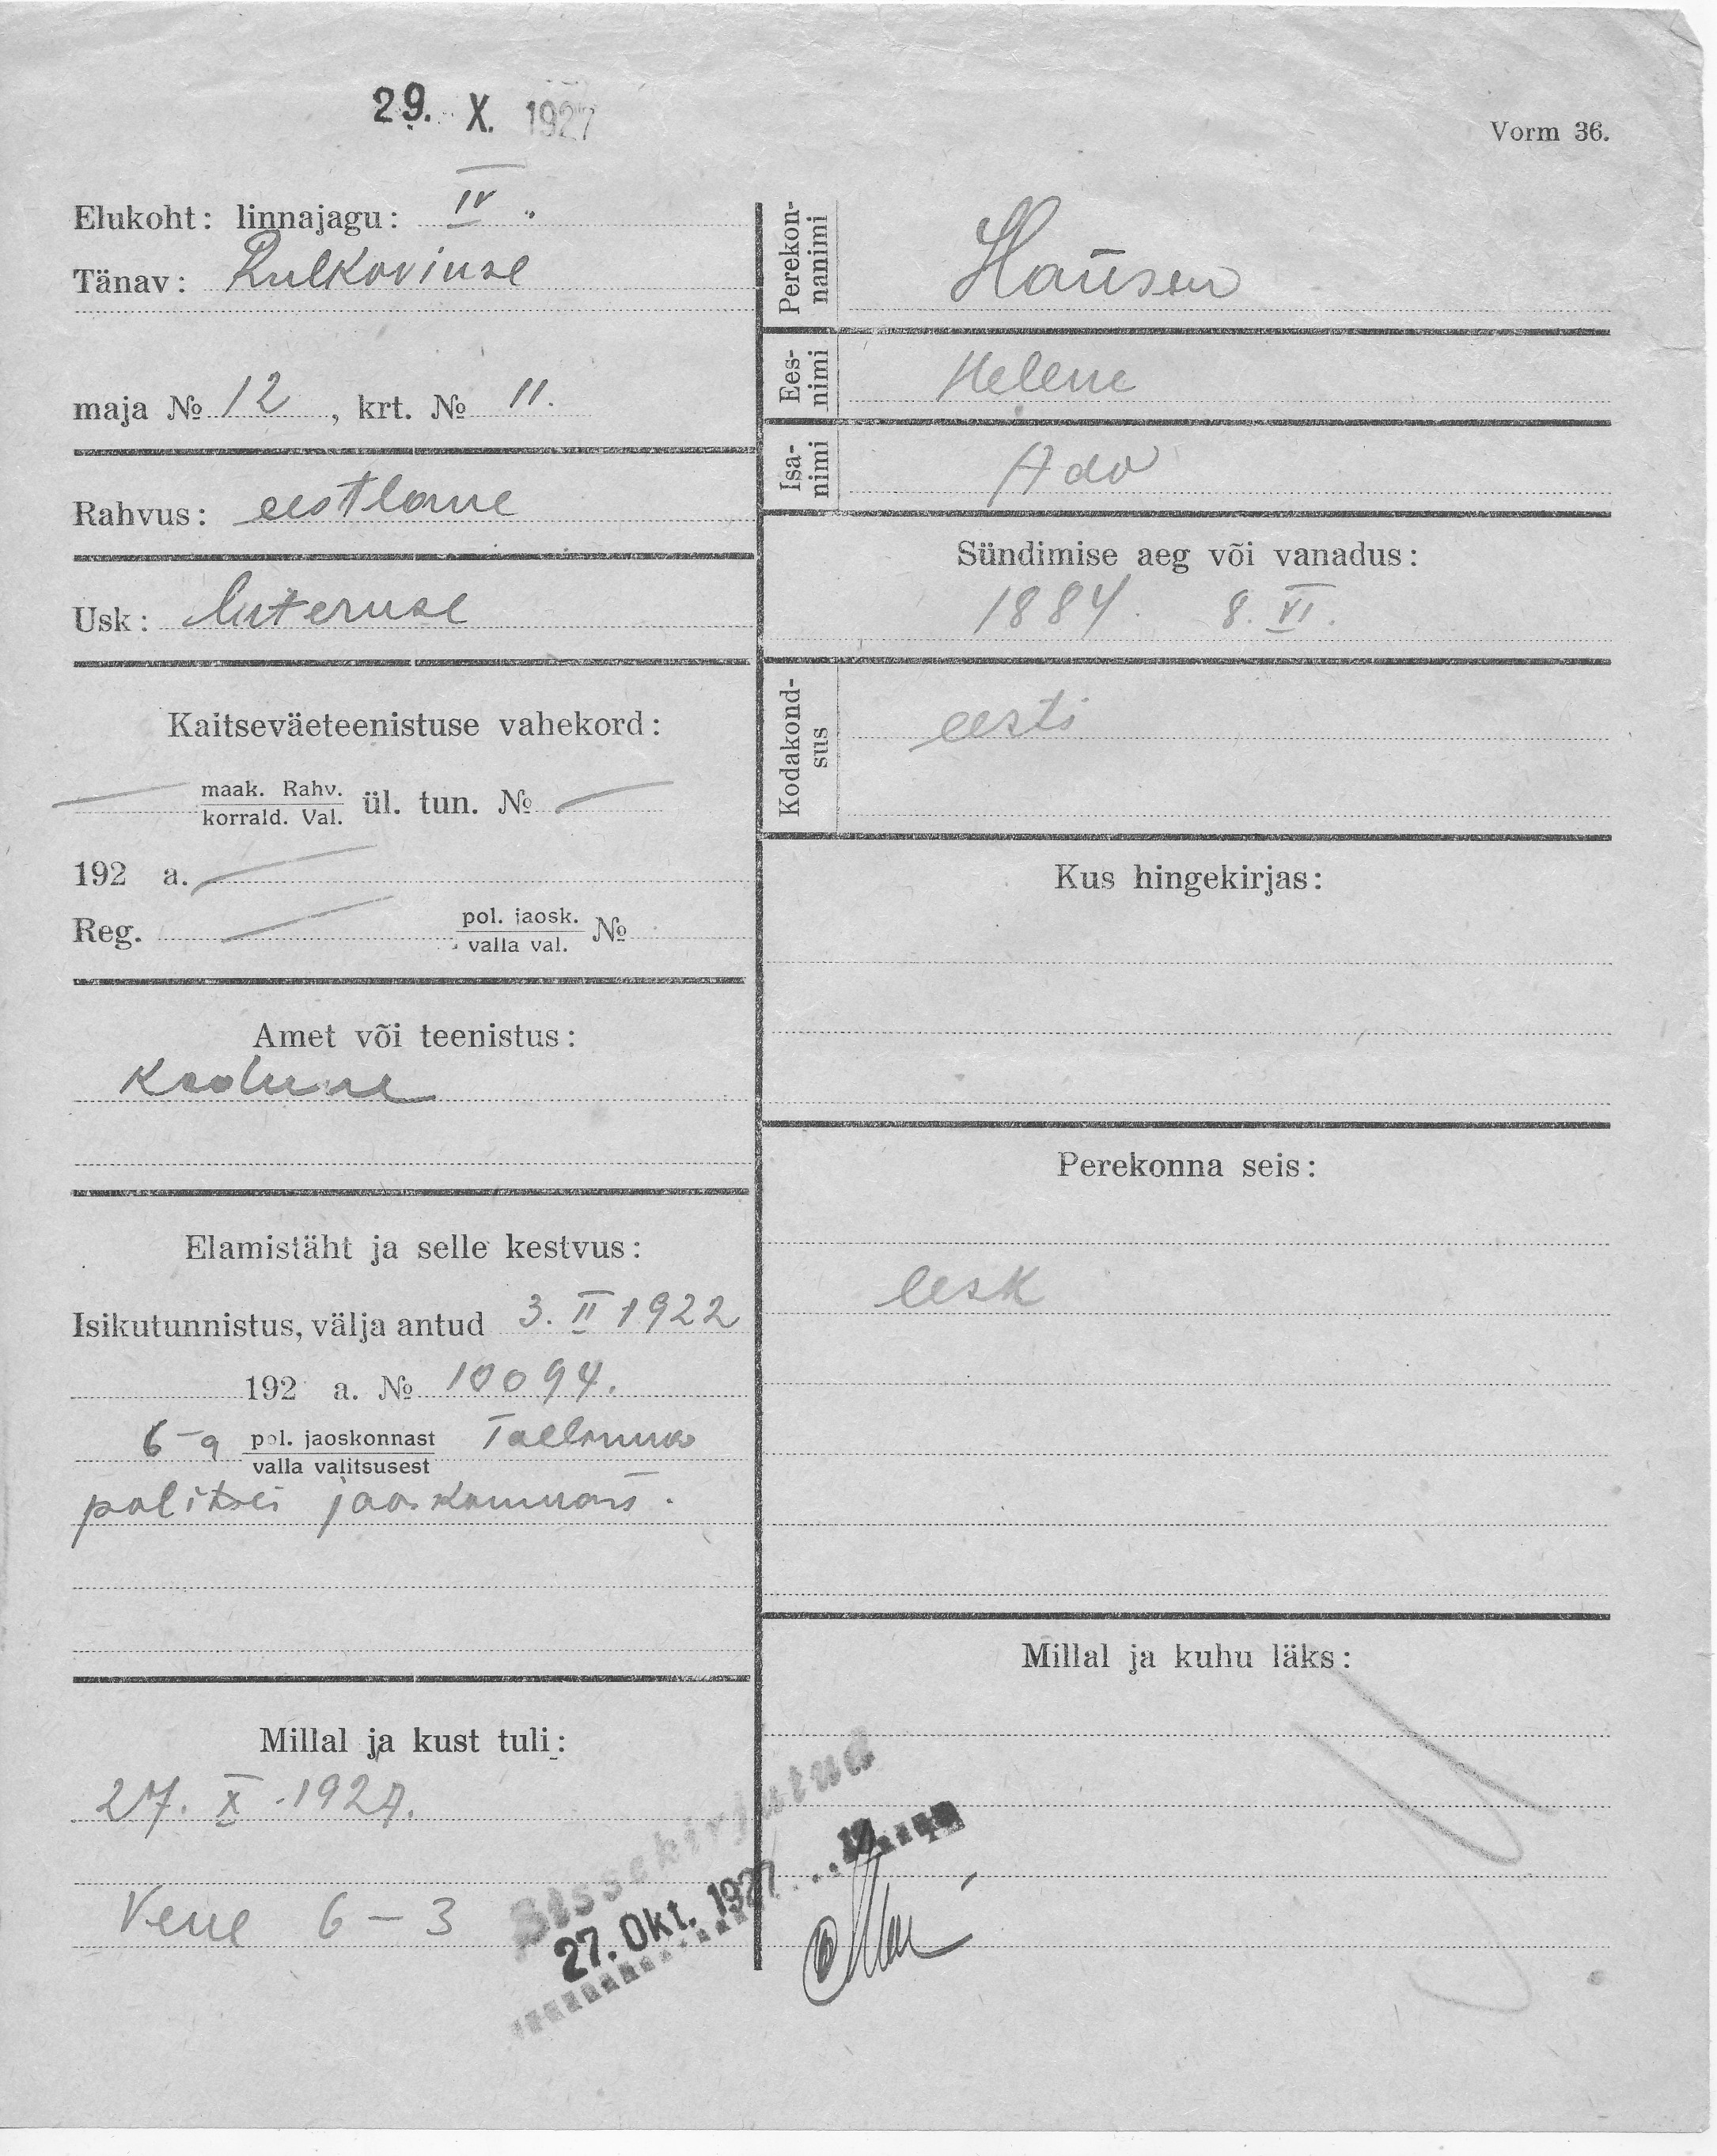 29. X. 1927
Vorm 36.
Elukoht: linnajagu: IV
Tänav: Rulkoviuse
maja № 12, krt. № 11.
Rahvus: eestlane
Usk: luteruse
Kaitseväeteenistuse vahekord:
— maak. Rahv. ül. tun. № —
korrald. Val.
192 a. —
Reg. — pol. jaosk. №
valla val.
Amet või teenistus:
Kodune
Elamistäht ja selle kestvus:
Isikutunnistus, välja antud 3. II 1922
192 a. № 10094.
6-a pol. jaoskonnast Tallinna
valla valitsusest
politsei jaoskonnas.
Millal ja kust tuli:
27. X. 1927.
Vene 6 – 3
Perekonnanimi
Hansen
Eesnimi
Helene
Isanimi
Ado
Sündimise aeg või vanadus:
1884. 8. VI.
Kodakondsus
eesti
Kus hingekirjas:
Perekonna seis:
lesk
Millal ja kuhu läks:
Sissekirjutud
27. Okt. 1927